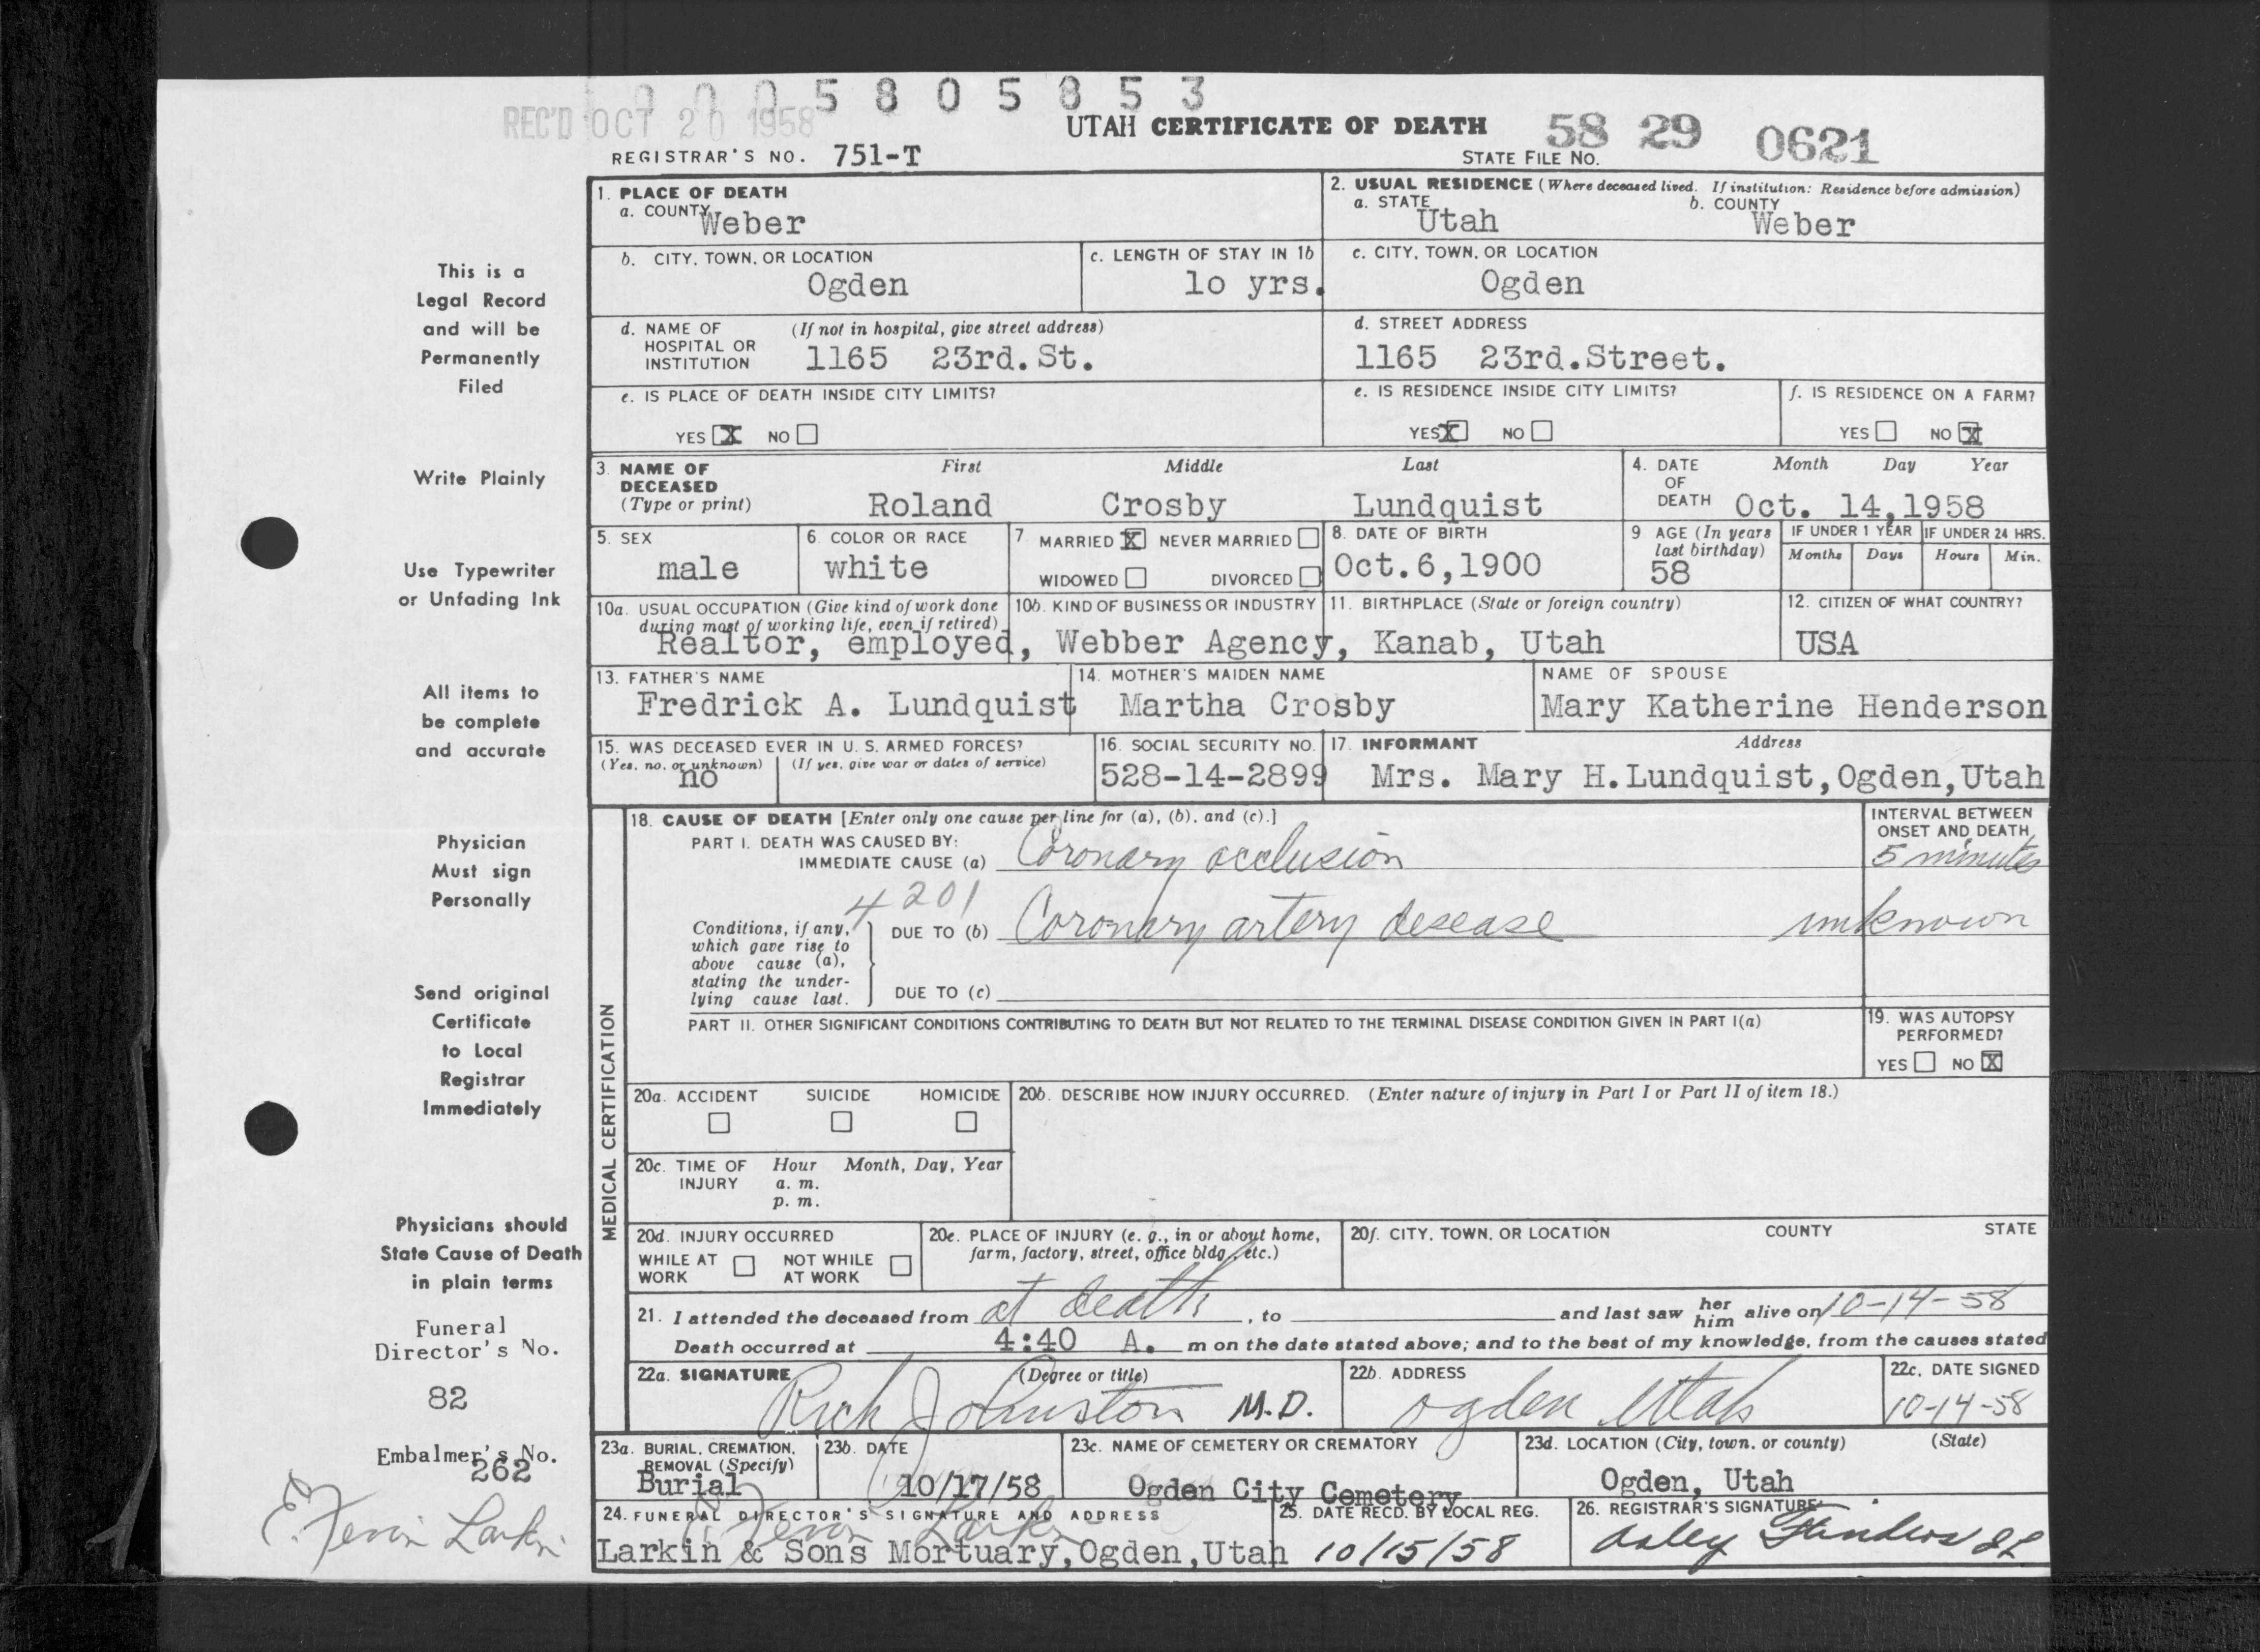 0005805853
REC'D OCT 20 1958
UTAH CERTIFICATE OF DEATH
58 29 0621
REGISTRAR'S NO. 751-T
STATE FILE NO.
This is a
Legal Record
and will be
Permanently
Filed
Write Plainly
Use Typewriter
or Unfading Ink
All items to
be complete
and accurate
Physician
Must sign
Personally
Send original
Certificate
to Local
Registrar
Immediately
Physicians should
State Cause of Death
in plain terms
Funeral
Director's No.
82
Embalmer's No.
262
Larkin
1. PLACE OF DEATH
a. COUNTY Weber
2. USUAL RESIDENCE (Where deceased lived. If institution: Residence before admission)
a. STATE Utah b. COUNTY Weber
b. CITY, TOWN, OR LOCATION
Ogden
c. LENGTH OF STAY IN 1b
1o yrs.
c. CITY, TOWN, OR LOCATION
Ogden
d. NAME OF (If not in hospital, give street address)
HOSPITAL OR
INSTITUTION 1165 23rd. St.
d. STREET ADDRESS
1165 23rd.Street.
e. IS PLACE OF DEATH INSIDE CITY LIMITS?
YES X NO
e. IS RESIDENCE INSIDE CITY LIMITS?
YES X NO
f. IS RESIDENCE ON A FARM?
YES NO X
3. NAME OF First Middle Last
DECEASED
(Type or print) Roland Crosby Lundquist
4. DATE Month Day Year
OF
DEATH Oct. 14,1958
5. SEX
male
6. COLOR OR RACE
white
7 MARRIED X NEVER MARRIED
WIDOWED DIVORCED
8. DATE OF BIRTH
Oct.6,1900
9 AGE (In years
last birthday)
58
IF UNDER 1 YEAR IF UNDER 24 HRS.
Months Days Hours Min.
10a. USUAL OCCUPATION (Give kind of work done
during most of working life, even if retired)
10b. KIND OF BUSINESS OR INDUSTRY
11. BIRTHPLACE (State or foreign country)
12. CITIZEN OF WHAT COUNTRY?
Realtor, employed, Webber Agency, Kanab, Utah USA
13. FATHER'S NAME
Fredrick A. Lundquist
14. MOTHER'S MAIDEN NAME
Martha Crosby
NAME OF SPOUSE
Mary Katherine Henderson
15. WAS DECEASED EVER IN U. S. ARMED FORCES?
(Yes, no, or unknown) (If yes, give war or dates of service)
no
16. SOCIAL SECURITY NO.
528-14-2899
17. INFORMANT Address
Mrs. Mary H.Lundquist,Ogden,Utah
MEDICAL CERTIFICATION
18. CAUSE OF DEATH [Enter only one cause per line for (a), (b), and (c).]
INTERVAL BETWEEN
ONSET AND DEATH
PART I. DEATH WAS CAUSED BY:
IMMEDIATE CAUSE (a) Coronary occlusion 5 minutes
4201
Conditions, if any,
which gave rise to
above cause (a),
stating the under-
lying cause last.
DUE TO (b) Coronary artery desease unknown
DUE TO (c)
PART II. OTHER SIGNIFICANT CONDITIONS CONTRIBUTING TO DEATH BUT NOT RELATED TO THE TERMINAL DISEASE CONDITION GIVEN IN PART I(a)
19. WAS AUTOPSY
PERFORMED?
YES NO X
20a. ACCIDENT SUICIDE HOMICIDE
20b. DESCRIBE HOW INJURY OCCURRED. (Enter nature of injury in Part I or Part II of item 18.)
20c. TIME OF Hour Month, Day, Year
INJURY a. m.
p. m.
20d. INJURY OCCURRED
WHILE AT NOT WHILE
WORK AT WORK
20e. PLACE OF INJURY (e. g., in or about home,
farm, factory, street, office bldg., etc.)
20f. CITY, TOWN, OR LOCATION COUNTY STATE
21. I attended the deceased from at death, to and last saw her him alive on 10-14-58
Death occurred at 4:40 A. m on the date stated above; and to the best of my knowledge, from the causes stated
22a. SIGNATURE (Degree or title)
Rich Johnston M.D.
22b. ADDRESS
Ogden Utah
22c. DATE SIGNED
10-14-58
23a. BURIAL, CREMATION,
REMOVAL (Specify)
Burial
23b. DATE
10/17/58
23c. NAME OF CEMETERY OR CREMATORY
Ogden City Cemetery
23d. LOCATION (City, town, or county) (State)
Ogden, Utah
24. FUNERAL DIRECTOR'S SIGNATURE AND ADDRESS
Larkin & Sons Mortuary,Ogden,Utah
25. DATE RECD. BY LOCAL REG.
10/15/58
26. REGISTRAR'S SIGNATURE